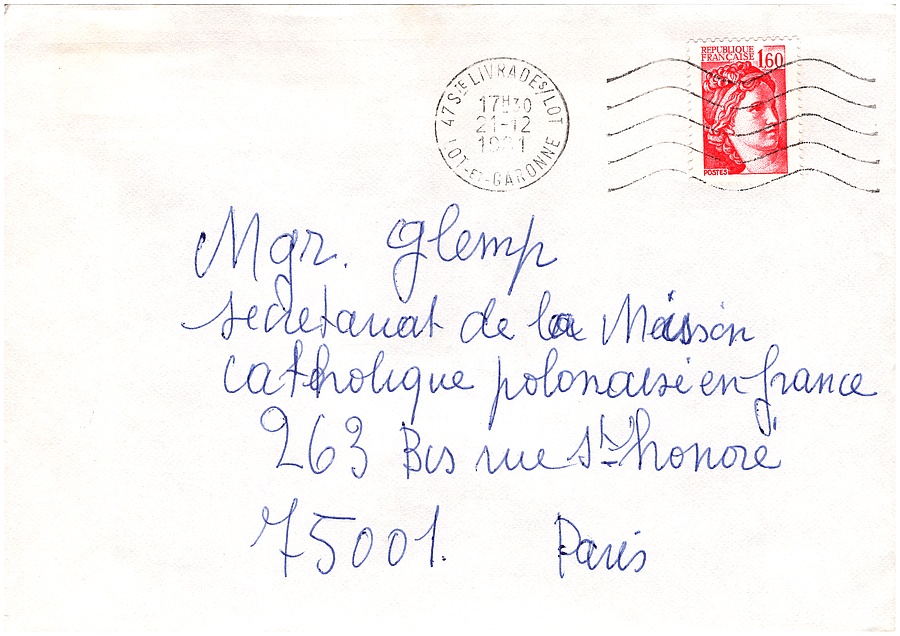 47 STE LIVRADE S/LOT
17H30
21-12
1981
LOT-ET-GARONNE
REPUBLIQUE
FRANÇAISE
1,60
POSTES
Mgr. Glemp
secretariat de la Mission
catholique polonaise en france
263 Bis rue St-honoré
75001. Paris